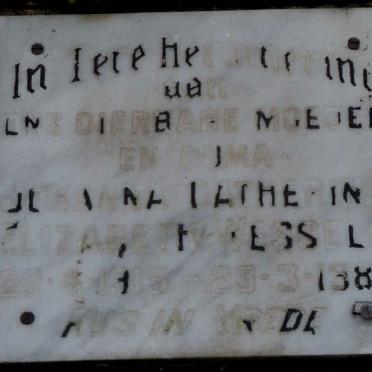 In Tere Herinnering
aan
ONS DIERBARE MOEDER
EN OUMA
JOHANNA CATHERINA
ELIZABETH WESSELS
RUS IN VREDE